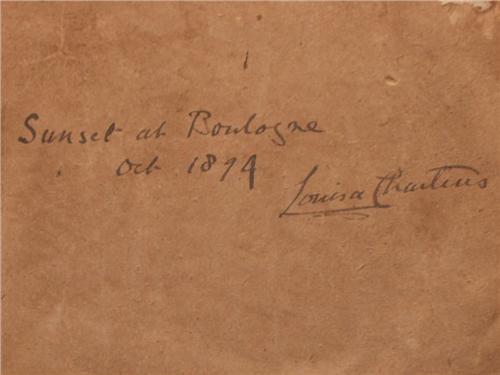 Sunset at Boulogne
Oct 1894
Louisa Charteris